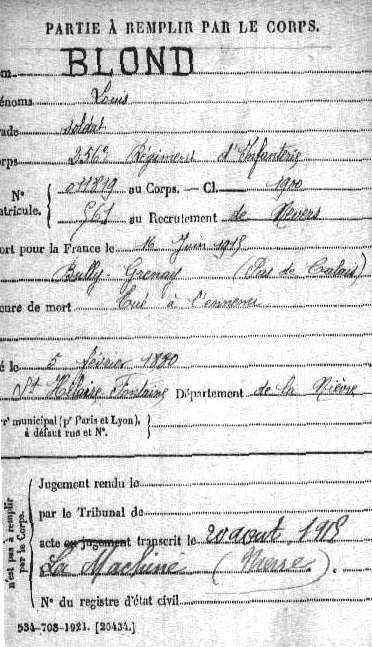 PARTIE À REMPLIR PAR LE CORPS.
om BLOND
énoms Louis
ade soldat
orps 256e Régiment d'Infanterie
N° 011819 au Corps. — Cl. 1900
atricule. 561 au Recrutement de Nevers
ort pour la France le 16 Juin 1915
Bully-Grenay (Pas de Calais)
enre de mort Tué à l'ennemi
é le 5 février
St Hilaire Fontaine Département de la Nièvre
rt municipal (pr Paris et Lyon),
à défaut rue et N°.
n'est pas à remplir
par le Corps.
Jugement rendu le
par le Tribunal de
acte ou jugement transcrit le 20 août 1915
La Machine (Nièvre).
N° du registre d'état civil
534-708-1921. [26434.]